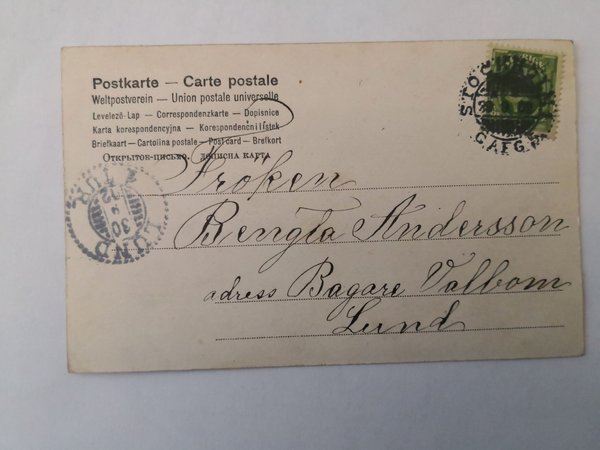 Postkarte — Carte postale
Weltpostverein — Union postale universelle
Levelező-Lap — Correspondenzkarte — Dopisnice
Karta korespondencyjna — Korespondenčni lístek
Briefkaart — Cartolina postale — Post card — Brefkort
Открытое письмо, дописна карта
Fröken
Bengta Andersson
adress Bagare Valbom
Lund
LUND
30
12
STOCKHOLM